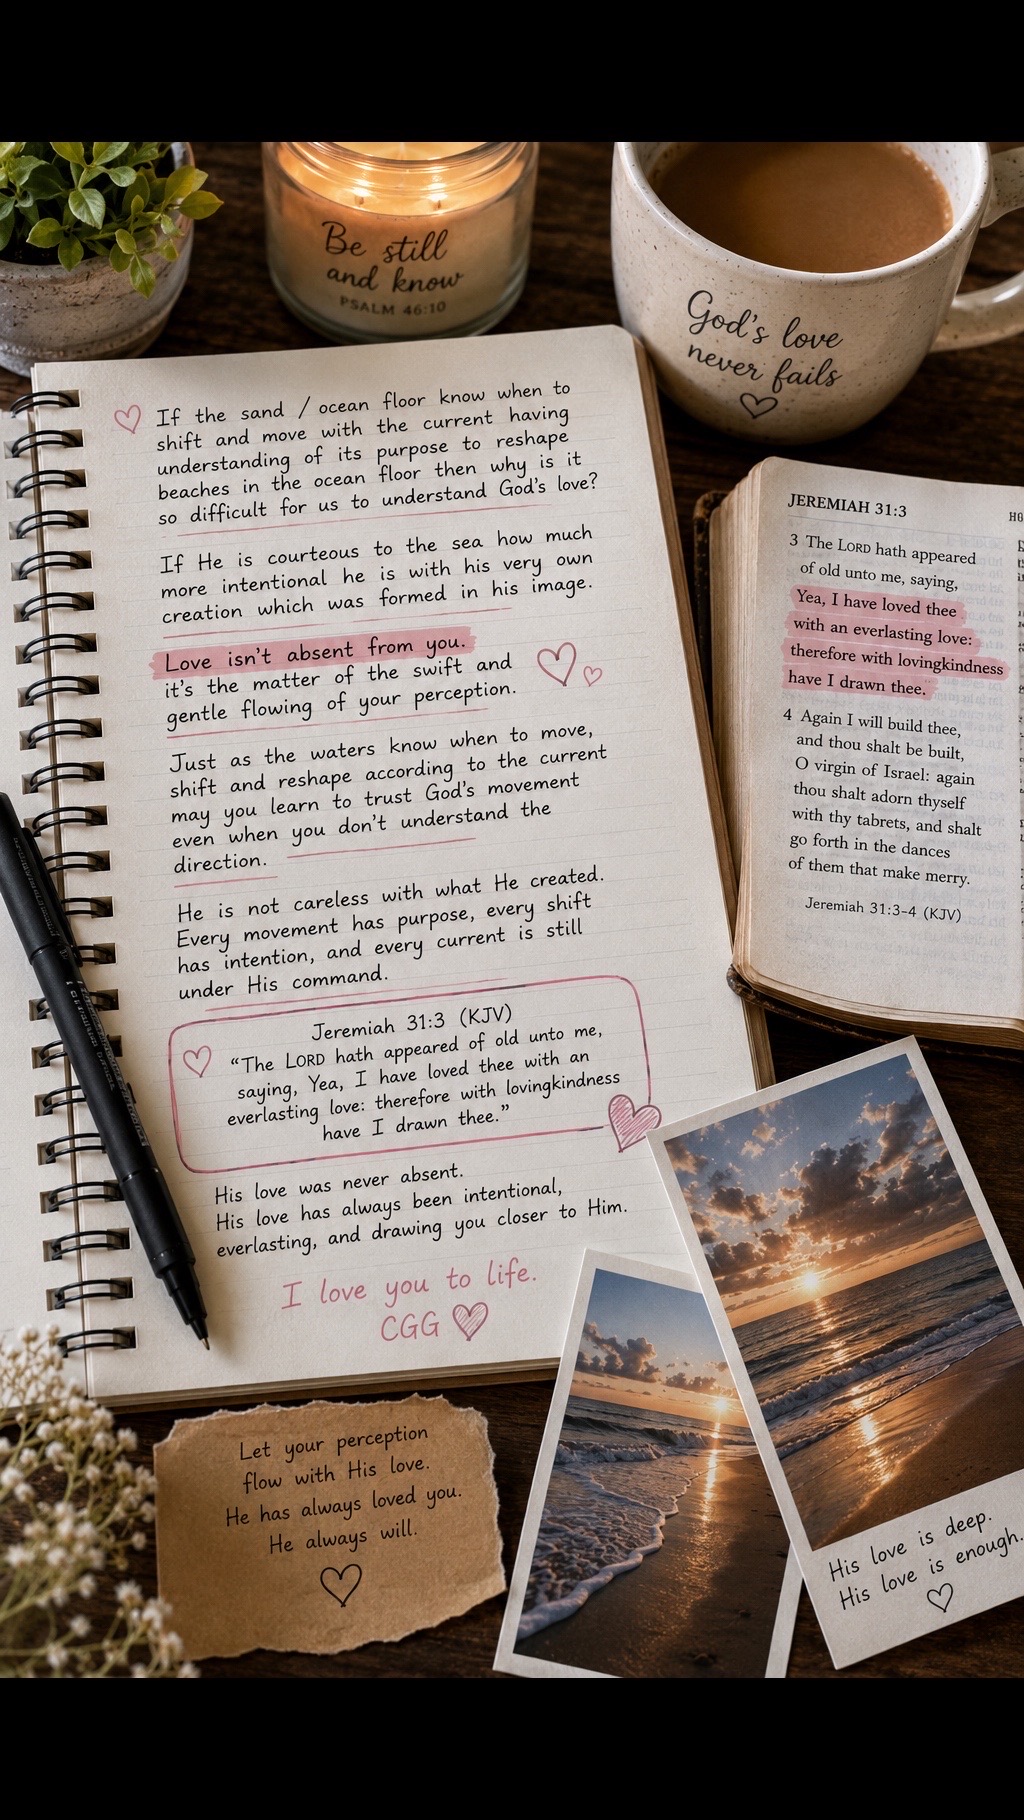 Be still
and know
PSALM 46:10
God's love
never fails
If the sand / ocean floor know when to
shift and move with the current having
understanding of its purpose to reshape
beaches in the ocean floor then why is it
so difficult for us to understand God's love?
If He is courteous to the sea how much
more intentional he is with his very own
creation which was formed in his image.
Love isn't absent from you.
it's the matter of the swift and
gentle flowing of your perception.
Just as the waters know when to move,
shift and reshape according to the current
may you learn to trust God's movement
even when you don't understand the
direction.
He is not careless with what He created.
Every movement has purpose, every shift
has intention, and every current is still
under His command.
Jeremiah 31:3 (KJV)
“The LORD hath appeared of old unto me,
saying, Yea, I have loved thee with an
everlasting love: therefore with lovingkindness
have I drawn thee.”
His love was never absent.
His love has always been intentional,
everlasting, and drawing you closer to Him.
I love you to life.
CGG
JEREMIAH 31:3
3 The LORD hath appeared
of old unto me, saying,
Yea, I have loved thee
with an everlasting love:
therefore with lovingkindness
have I drawn thee.
4 Again I will build thee,
and thou shalt be built,
O virgin of Israel: again
thou shalt adorn thyself
with thy tabrets, and shalt
go forth in the dances
of them that make merry.
Jeremiah 31:3–4 (KJV)
Let your perception
flow with His love.
He has always loved you.
He always will.
His love is deep.
His love is enough.